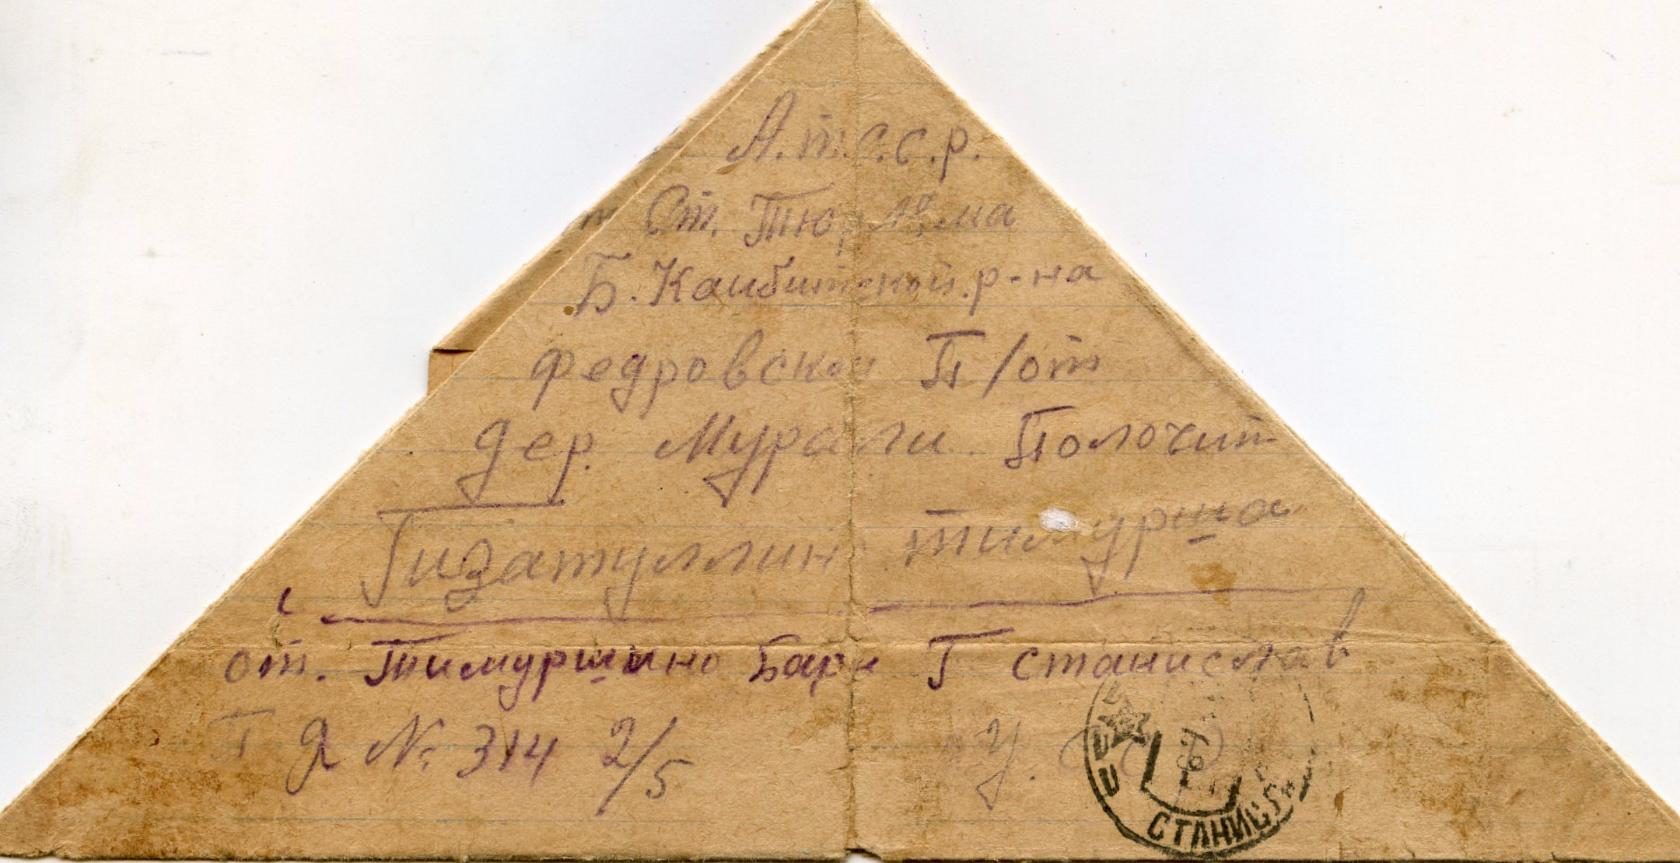 А.т.с.с.р.
Ст. Тюрлема
Б. Каибитской р-на
Федровской П/от
дер. Мурали Полочит
Гизатуллин тимурша
от. Тимуршино Бари Г станислав
П Я № 314 2/5
У. С С Р
СТАНИСЛ